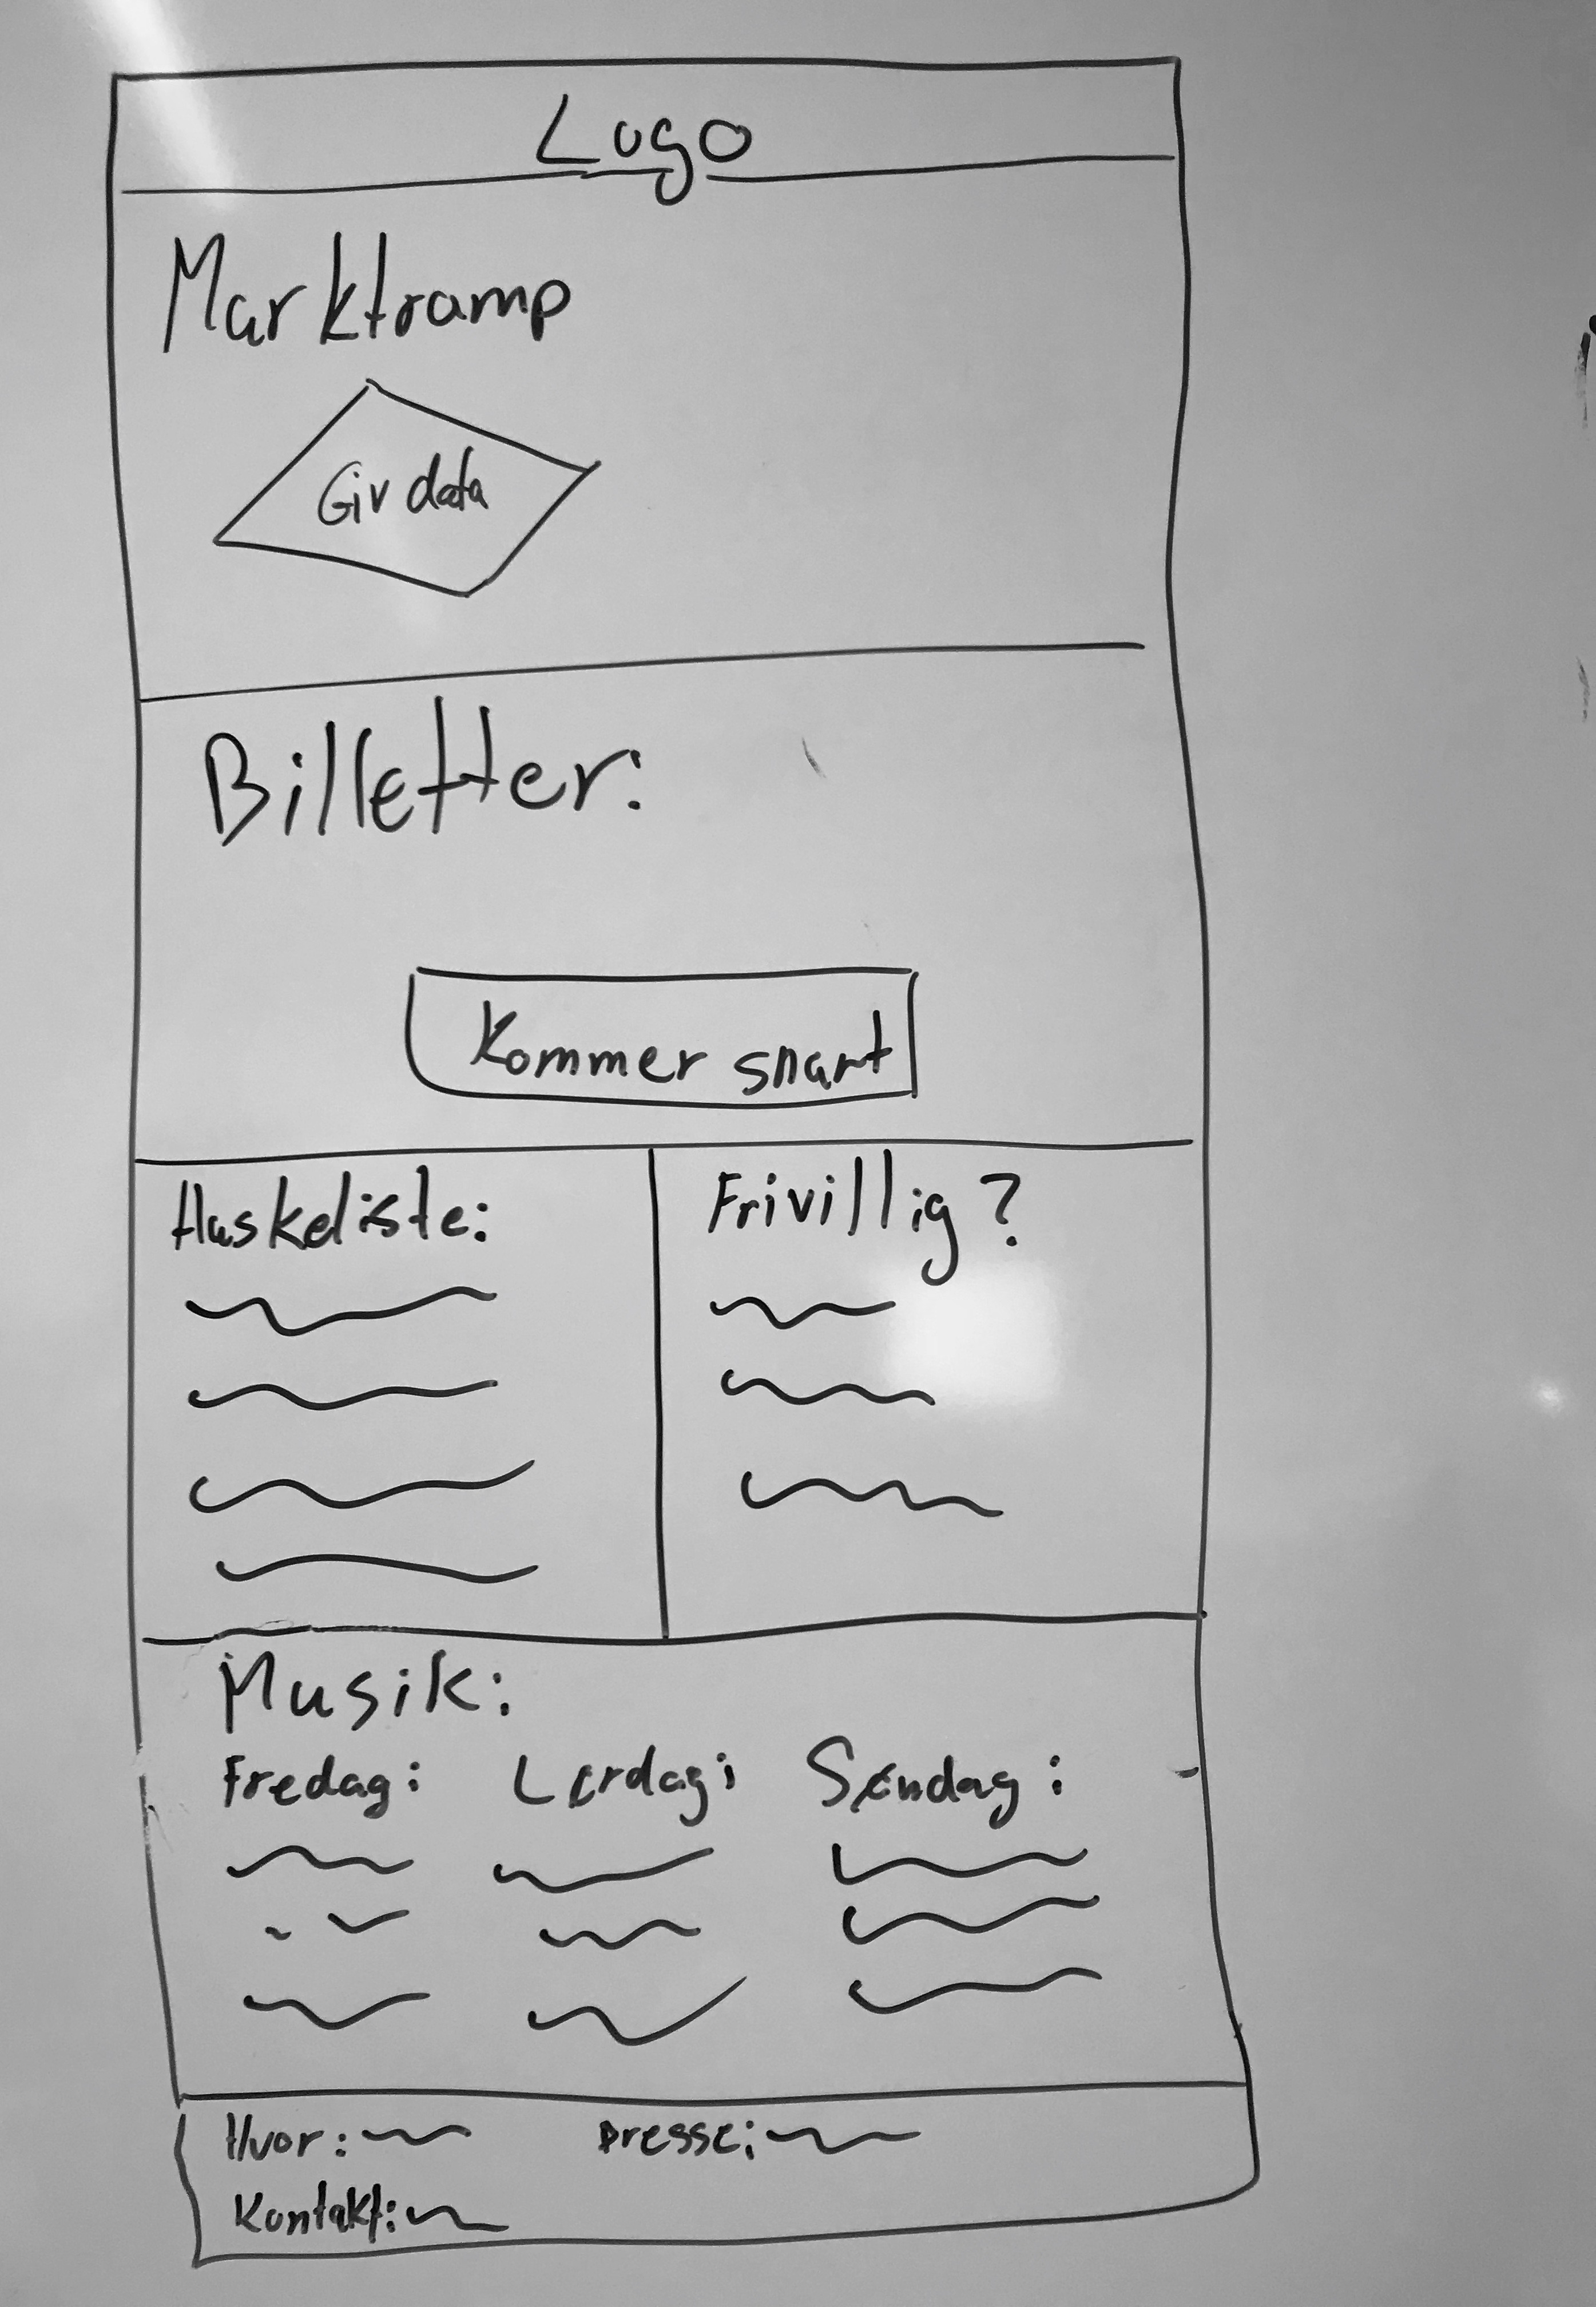 Logo
Marktramp
Giv data
Billetter:
Kommer snart
Huskeliste:
Frivillig?
Musik:
Fredag: Lørdag: Søndag:
Hvor: Presse:
Kontakt: